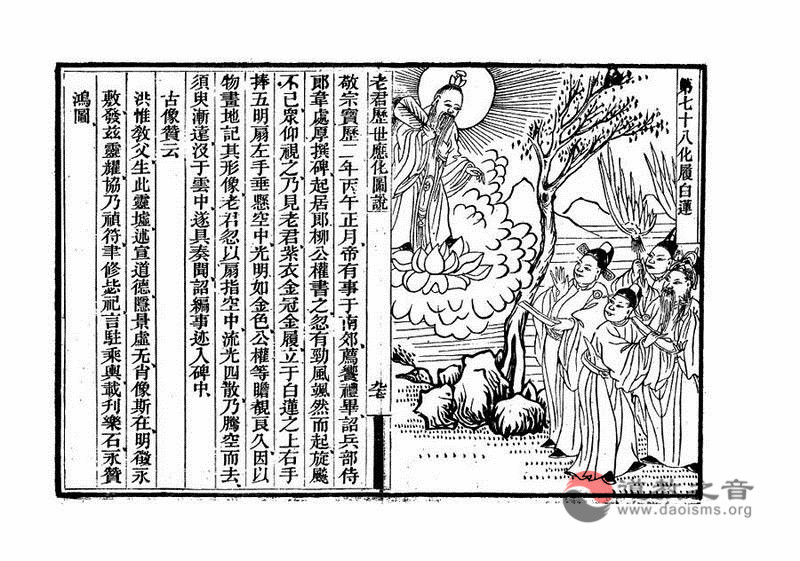 第七十八化履白蓮
老君歷世應化圖說
敬宗寶歷二年丙午正月、帝有事于南郊、薦饗禮畢、詔兵部侍
郎韋處厚撰碑、起居郎柳公權書之、忽有勁風颯然而起、旋飈
不已、眾仰視之、乃見老君紫衣金冠金履、立于白蓮之上、右手
捧五明扇、左手垂懸空中、光明如金色、公權等瞻覩良久、因以
物畫地、記其形像、老君忽以扇指空中、流光四散、乃騰空而去、
須臾漸遠、沒于雲中、遂具奏聞、詔編事迹入碑中、
古像贊云
洪惟教父、生此靈墟、述宣道德、隱景虛无、肖像斯在、明徵永
敷、發茲靈耀、協乃禎符、聿修毖祀、言駐乘輿、載刊樂石、永贊
鴻圖、
道教之音
www.daoisms.org